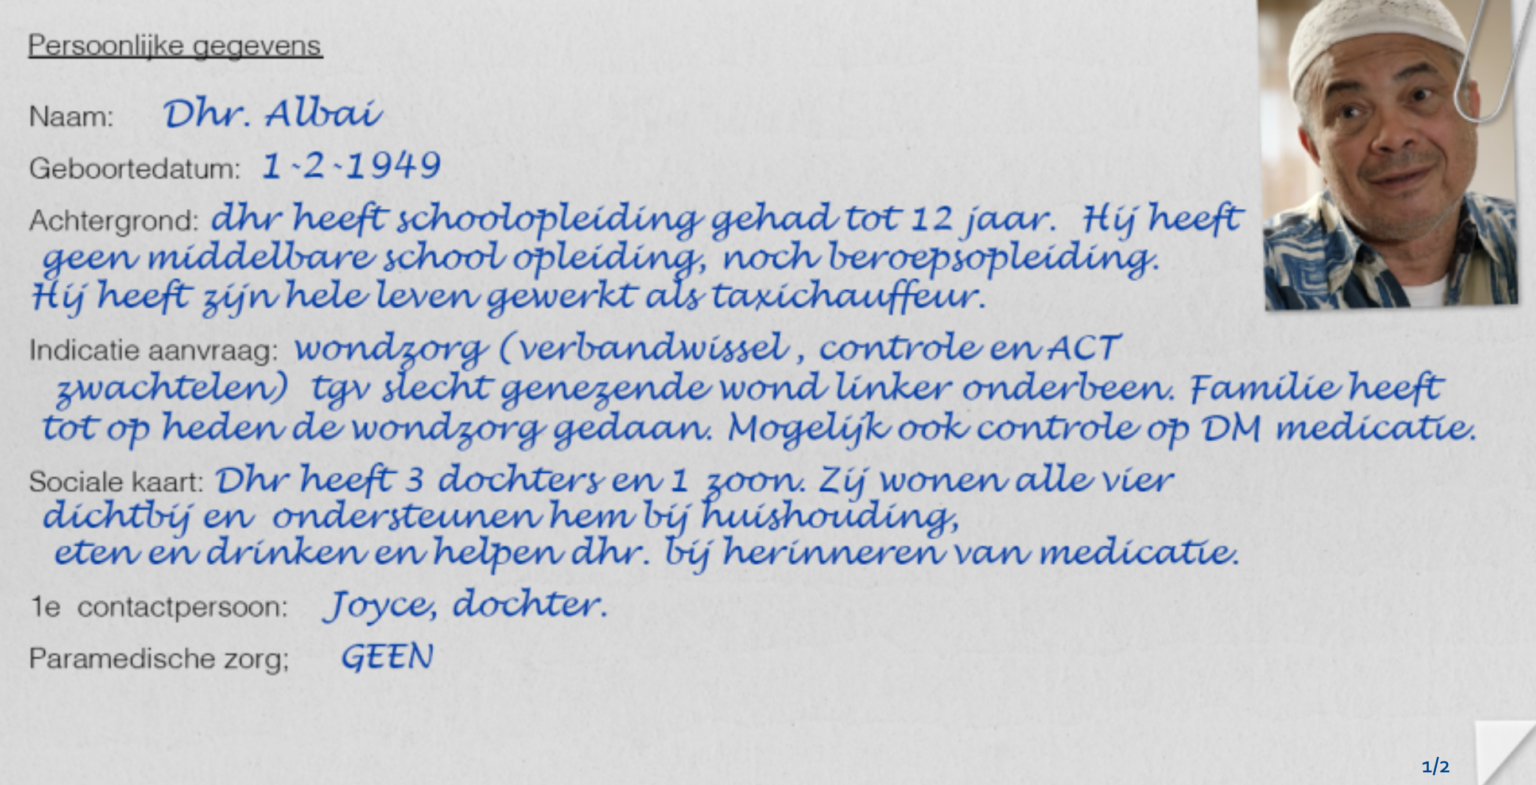 Persoonlijke gegevens
Naam: Dhr. Albai
Geboortedatum: 1-2-1949
Achtergrond: dhr heeft schoolopleiding gehad tot 12 jaar. Hij heeft
geen middelbare school opleiding, noch beroepsopleiding.
Hij heeft zijn hele leven gewerkt als taxichauffeur.
Indicatie aanvraag: wondzorg (verbandwissel, controle en ACT
zwachtelen) tgv slecht genezende wond linker onderbeen. Familie heeft
tot op heden de wondzorg gedaan. Mogelijk ook controle op DM medicatie.
Sociale kaart: Dhr heeft 3 dochters en 1 zoon. Zij wonen alle vier
dichtbij en ondersteunen hem bij huishouding,
eten en drinken en helpen dhr. bij herinneren van medicatie.
1e contactpersoon: Joyce, dochter.
Paramedische zorg; GEEN
1/2